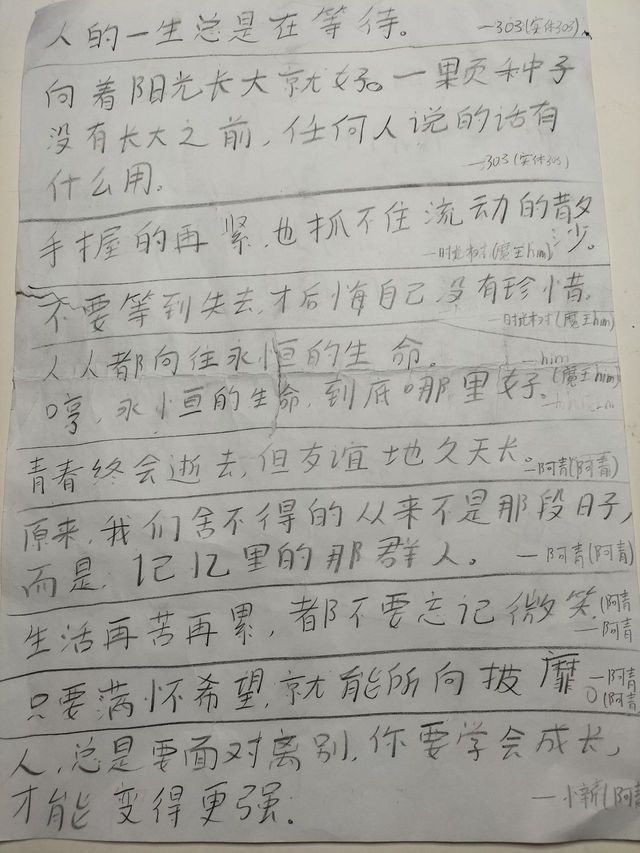 人的一生总是在等待。 —303(实体303)
向着阳光长大就好。一颗种子
没有长大之前，任何人说的话有
什么用。 —303(实体303)
手握的再紧，也抓不住流动的散沙。
—时光树(魔王him)
不要等到失去，才后悔自己没有珍惜。
—时光树(魔王him)
人人都向往永恒的生命。 —him
(魔王him)
哼，永恒的生命，到底哪里好。
青春终会逝去，但友谊地久天长。—阿青(阿青)
原来，我们舍不得的从来不是那段日子，
而是，记忆里的那群人。 —阿青(阿青)
生活再苦再累，都不要忘记微笑。(阿青
—阿青
只要满怀希望，就能所向披靡。—阿青
(阿青
人，总是要面对离别，你要学会成长，
才能变得更强。 —小新(阿青